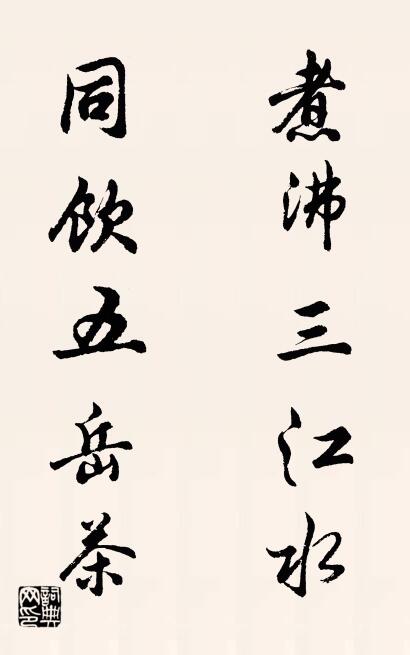 煮沸三江水
同飲五岳茶